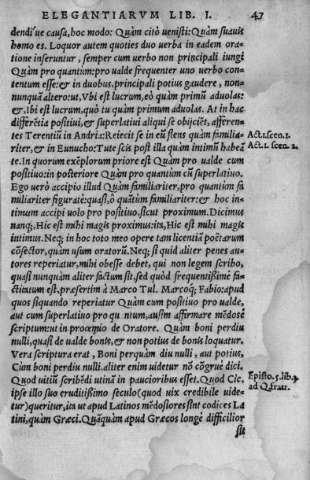 ELEGANTIARVM LIB. I. 47
dendi'ue causa, hoc modo: Quàm citò uenisti: Quàm suauis
homo es. Loquor autem quoties duo uerba in eadem ora-
tione inseruntur, semper cum uerbo non principali iungi
Quàm pro quantum: pro ualde frequenter uno uerbo con-
tentum esse: & in duobus, principali potius gaudere, non-
nunquã altero: ut, Vbi est lucrum, eò quàm primũ aduolas:
&, ibi est lucrum, quò tu quàm primum aduolas. At in hac
differẽtia positiui, & superlatiui aliqui se obijciẽt, afferen-
tes Terentiũ in Andria: Reiecit se in eũ flens quàm familia-
riter, & in Eunucho: Tute scis post illa quàm intimũ habeã
te. In quorum exẽplorum priore est Quàm pro ualde cum
positiuo: in posteriore Quàm pro quantum cũ superlatiuo.
Ego uerò accipio illud Quàm familiariter, pro quantum fa
miliariter figuratè: quasi, ô quãtũm familiariter: & hoc in-
timum accipi uolo pro positiuo, sicut proximum. Dicimus
nanq;, Hic est mihi magis proximus: ita, Hic est mihi magis
intimus. Neq; in hoc toto meo opere tam licentiã poẽtarum
cõsector, quàm usum oratorũ. Neq; si quid aliter penes au-
tores reperiatur, mihi obesse debet, qui non legem scribo,
quasi nunquàm aliter factum sit, sed quòd frequentißimè fa-
ctitatum est, præsertim à Marco Tul. Marcoq; Fabio: apud
quos sicunde reperiatur Quàm cum positiuo pro ualde,
aut cum superlatiuo pro quantum, ausim affirmare mẽdosè
scriptum: ut in proœmio de Oratore. Quàm boni perdiu
nulli, quasi de ualde bonis, & non potius de bonis loquatur.
Vera scriptura erat, Boni perquàm diu nulli, aut potius,
Cùm boni perdiu nulli. aliter enim uidetur nõ cõgruè dici.
Quod uitiũ scribẽdi utinã in paucioribus esset. Quod Cic.
ipse illo suo eruditißimo seculo (quod uix credibile uide-
tur) queritur, ita ut apud Latinos mẽdosiores sint codices La
tini, quàm Græci. Quãquàm apud Græcos longè difficilior
sit
Act.1.scen.1.
Act.1. scen. 2.
Episto.5.lib.3
ad Q.frat.